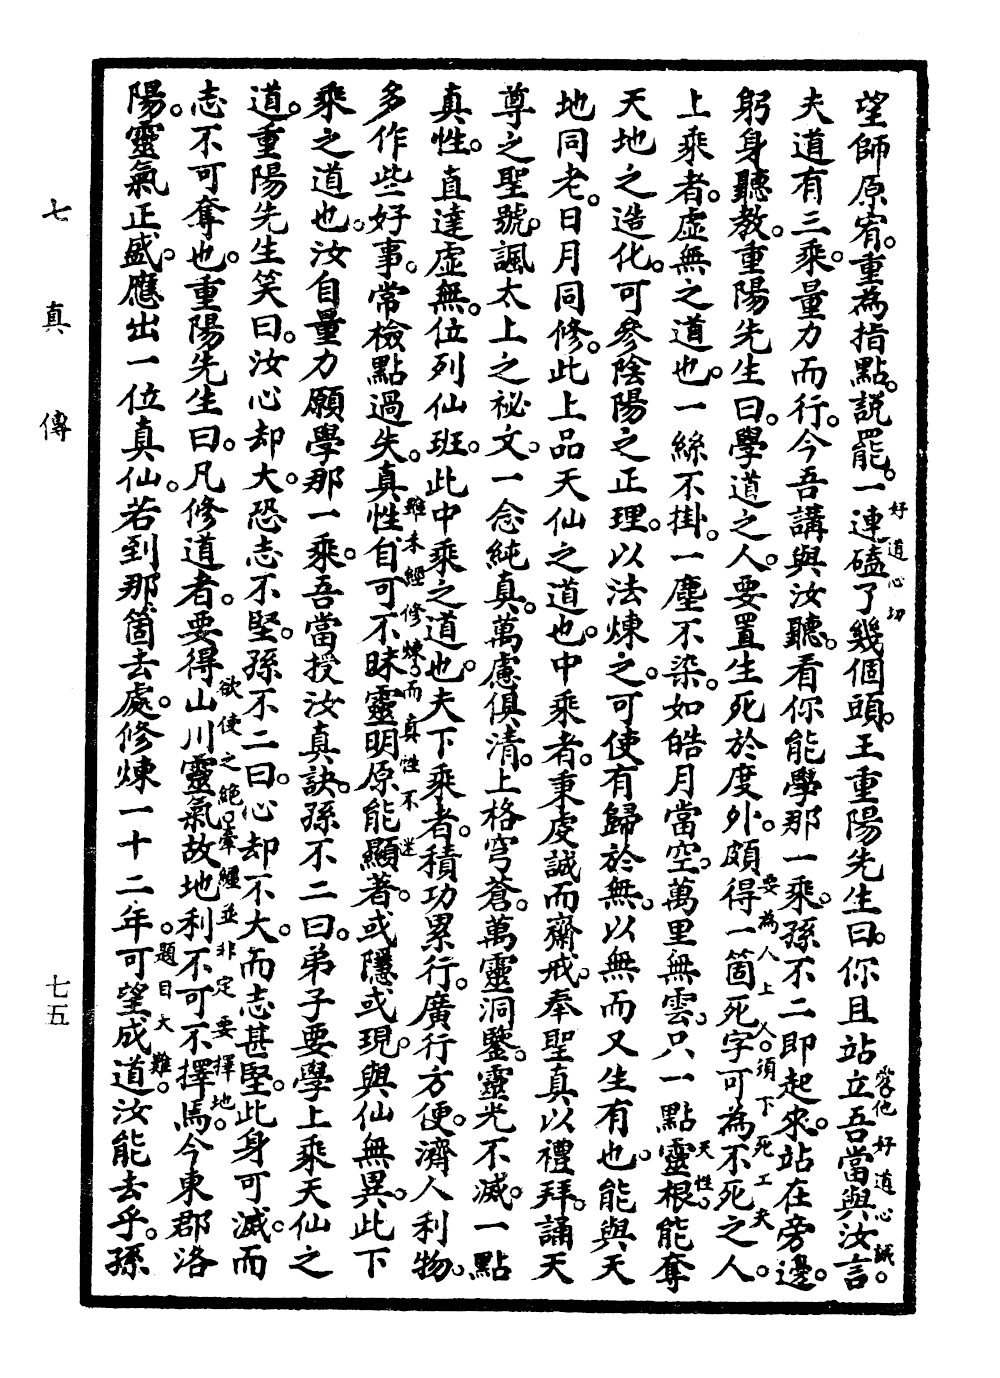 望師原宥。重為指點。說罷。一連磕了幾個頭。王重陽先生曰。你且站立吾當與汝言
好道心切
容他好道心誠。
夫道有三乘。量力而行。今吾講與汝聽。看你能學那一乘。孫不二即起來。站在旁邊。
躬身聽教。重陽先生曰。學道之人。要置生死於度外。頗得一箇死字可為不死之人。
要為人上人。須下死工夫。
上乘者。虛無之道也。一絲不掛。一塵不染。如皓月當空。萬里無雲。只一點靈根。能奪
天性。
天地之造化。可參陰陽之正理。以法煉之。可使有歸於無。以無而又生有也。能與天
地同老。日月同修。此上品天仙之道也。中乘者。秉虔誠而齋戒。奉聖真以禮拜。誦天
尊之聖號。諷太上之祕文。一念純真。萬慮俱清。上格穹蒼。萬靈洞鑒。靈光不滅。一點
真性。直達虛無。位列仙班。此中乘之道也。夫下乘者。積功累行。廣行方便。濟人利物。
多作些好事。常檢點過失。真性自可不昧。靈明原能顯著。或隱或現。與仙無異。此下
雖未經修煉。而真性不迷
乘之道也。汝自量力願學那一乘。吾當授汝真訣。孫不二曰。弟子要學上乘天仙之
道。重陽先生笑曰。汝心却大。恐志不堅。孫不二曰。心却不大。而志甚堅。此身可滅。而
志不可奪也。重陽先生曰。凡修道者。要得山川靈氣。故地利不可不擇焉。今東郡洛
欲使之絕牽纏並非定要擇地。
陽。靈氣正盛。應出一位真仙。若到那箇去處。修煉一十二年。可望成道。汝能去乎。孫
題目大難。
七真傳
七五